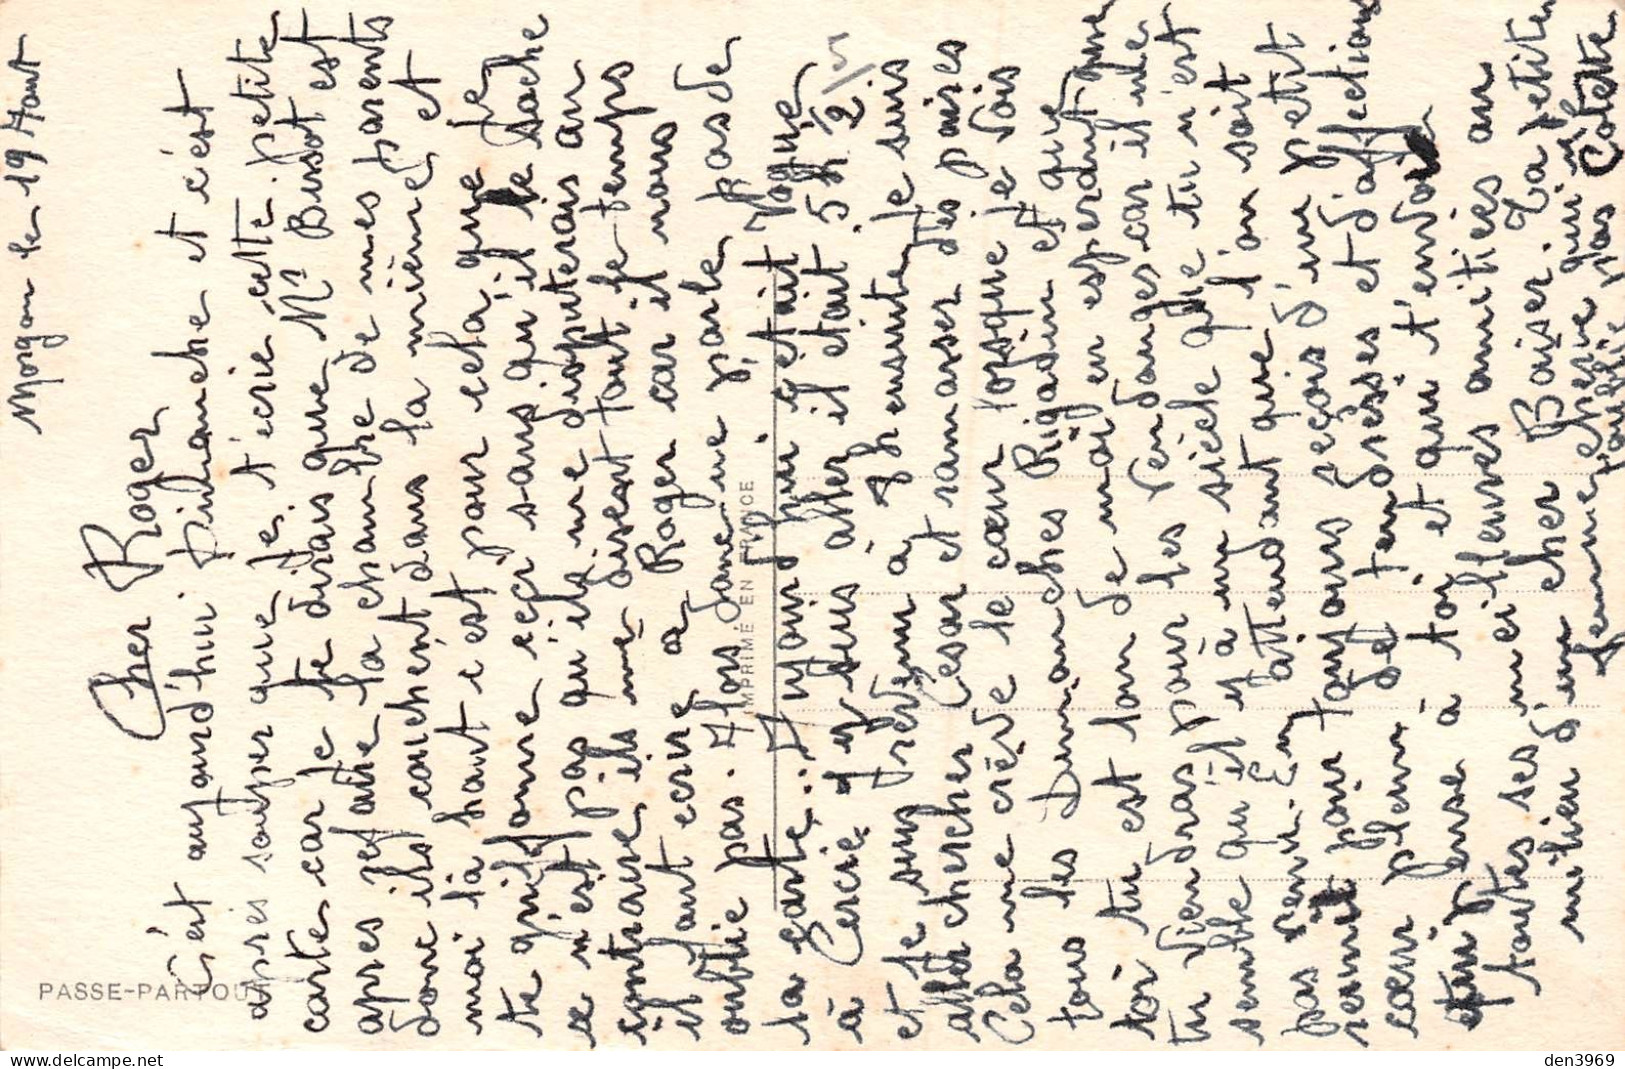 Morgon le 19 Aout
Cher Roger
C'est aujourd'hui Dimanche et c'est
après souper que je t'écrie cette petite
carte car je te dirais que Mr Busot est
apres refaire la chambre de mes parents
donc ils couchent dans la mienne et
moi là haut c'est pour cela que je
te griffonne ceçi sans qu'il le sache
ce n'est pas qu'ils me disputerais au
contraire ils me disent tout le temps
il faut ecrire a Roger car il nous
oublie pas. Alors donc me parle pas de
la carte. Aujourd'hui c'était Vogue
à Cercié j'y suis aller il était 5h 1/2
et je suis revenu à 8h ensuite je suis
aller chercher Cesar et ramasser des poires
Cela me crève le cœur lorsque je vois
tous les Dimanches Rigadin et que
toi tu est loin de moi en esperdut que
tu viendras pour les Vendanges car il me
semble qu'il y à un siècle que tu n'est
pas venu. En attendant que l'on soit
reunit pour toujours reçois d'un petit
cœur pleins de tendresses et d'affections
qui pense à toi et qui t'envoie
toutes ses meilleures amitiées au
milieu d'un cher Baiser. Ta petite
femme cherie qui ne
t'oublie pas Colette
PASSE-PARTOUT
IMPRIMÉ EN FRANCE
den3969